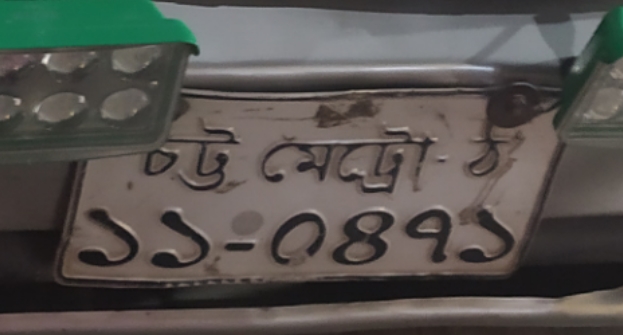 চট্ট মেট্রো-ঠ
১১-০৪৭১